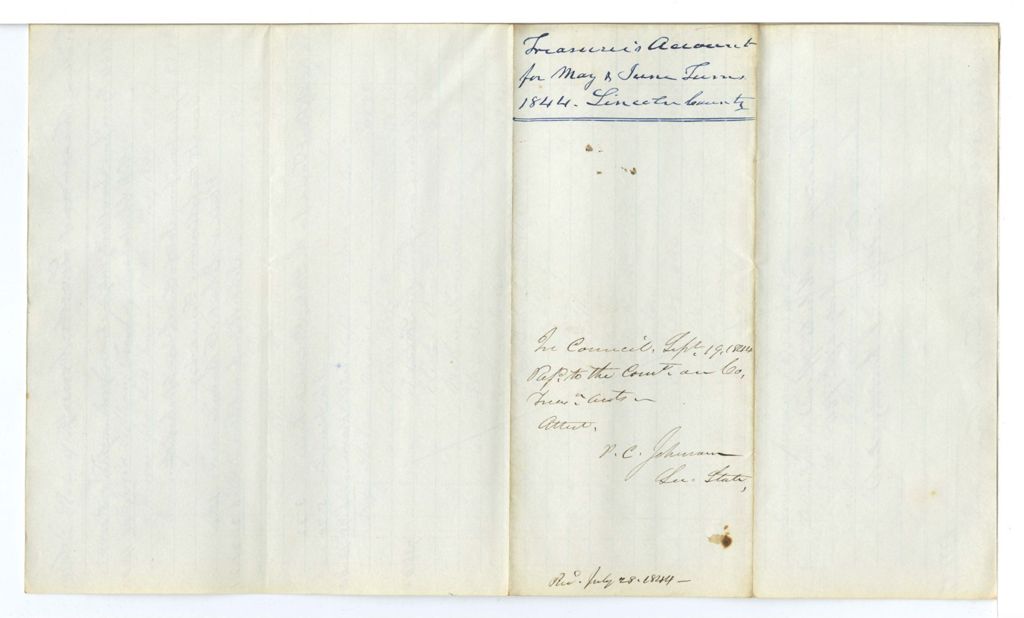 Treasurer's Account
for May & June Term
1844. Lincoln County
In Council. Sept. 19, 1844
Refd. to the Comte. on Co.
Treasrs. accts.
Attest,
P. C. Johnson
Sec. State,
Recd. July 28. 1844 —